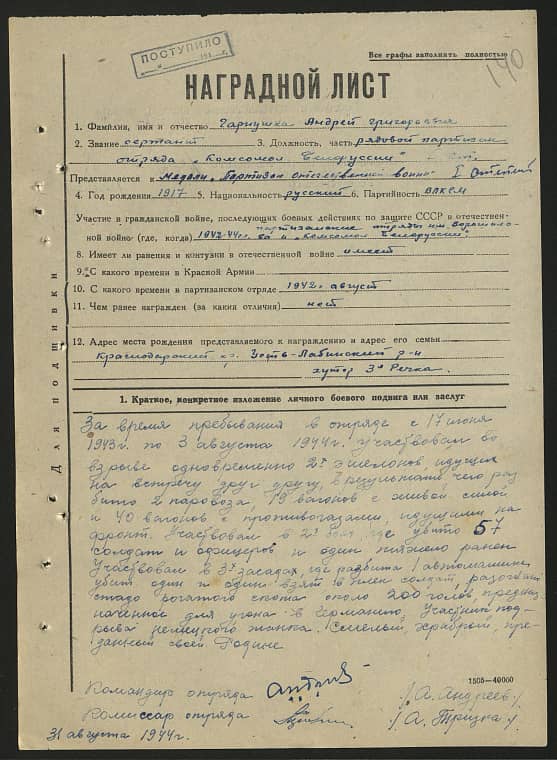 ПОСТУПИЛО
Все графы заполнять полностью
190
НАГРАДНОЙ ЛИСТ
1. Фамилия, имя и отчество Гаркушка Андрей Григорьевич
2. Звание сержант 3. Должность, часть рядовой партизан
отряда „Комсомол Белоруссии"
Представляется к медали „Партизан отечественной войны" I степени
4. Год рождения 1917 5. Национальность русский 6. Партийность ВЛКСМ
Участие в гражданской войне, последующих боевых действиях по защите СССР в отечествен-
партизанские отряды им. Ворошило-
ной войно (где, когда) 1942-44г.г. ва и „Комсомол Белоруссии"
8. Имеет ли ранения и контузии в отечественной войне имеет
9. С какого времени в Красной Армии
10. С какого времени в партизанском отряде 1942г. август
11. Чем ранее награжден (за какия отличия) нет
12. Адрес места рождения представляемого к награждению и адрес его семьи
Краснодарский кр. Усть-Лабинский р-н
хутор 3я Речка.
Для подшивки
1. Краткое, конкретное изложение личного боевого подвига или заслуг
За время пребывания в отряде с 17 июня
1943г. по 3 августа 1944г. участвовал во
взрыве одновременно 2х эшелонов, идущих
на встречу друг другу, в результате чего раз
бито 2 паровоза, 19 вагонов с живой силой
и 40 вагонов с противогазами, идущими на
фронт. Участвовал в 2х боях, где убито 57
солдат и офицеров и один тяжело ранен
Участвовал в 3х засадах, где разбита 1 автомашина,
убит один и один взят в плен солдат, разогнали
стадо рогатого скота около 200 голов, предназ
наченное для угона в Германию. Участник под-
рыва немецкого танка. Смелый, храбрый, пре-
данный своей Родине
1505—40000
Командир отряда /А. Андреев/
Комиссар отряда /А. Тризна/
31 августа 1944г.